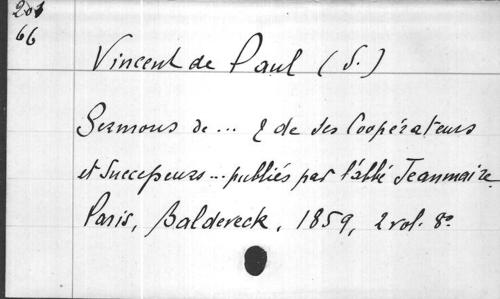 201
66
Vincent de Paul (S.)
Sermons de ... & de ses Coopérateurs
et Successeurs ... publiés par l'abbé Jeanmaire
Paris, Baldeveck, 1859, 2 vol. 8º